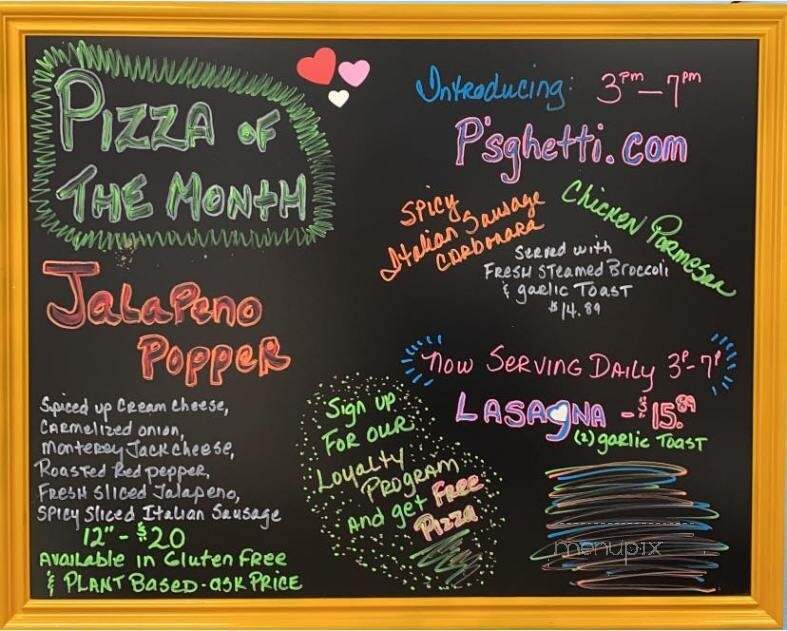 PIZZA OF
THE MONTH
JaLaPeno
POPPER
Spiced up Cream cheese,
CARmelized onion,
monterey Jack cheese,
Roasted Red pepper,
FRESH Sliced Jalapeno,
SPicy Sliced Italian Sausage
12" - $20
Available in Gluten Free
& PLANT BASED - ask PRICE
Sign up
FOR OUR
Loyalty
PROGRAM
And get Free
Pizza
Introducing: 3pm - 7pm
P'sghetti.com
SPicy
Italian Sausage
CARbonara
Chicken Parmesan
Served with
FRESH STeamed Broccoli
& garlic TOAST
$14.89
now SERVING DAILY 3P-7P
LASAGNA - $15.89
(2) garlic TOAST
menupix